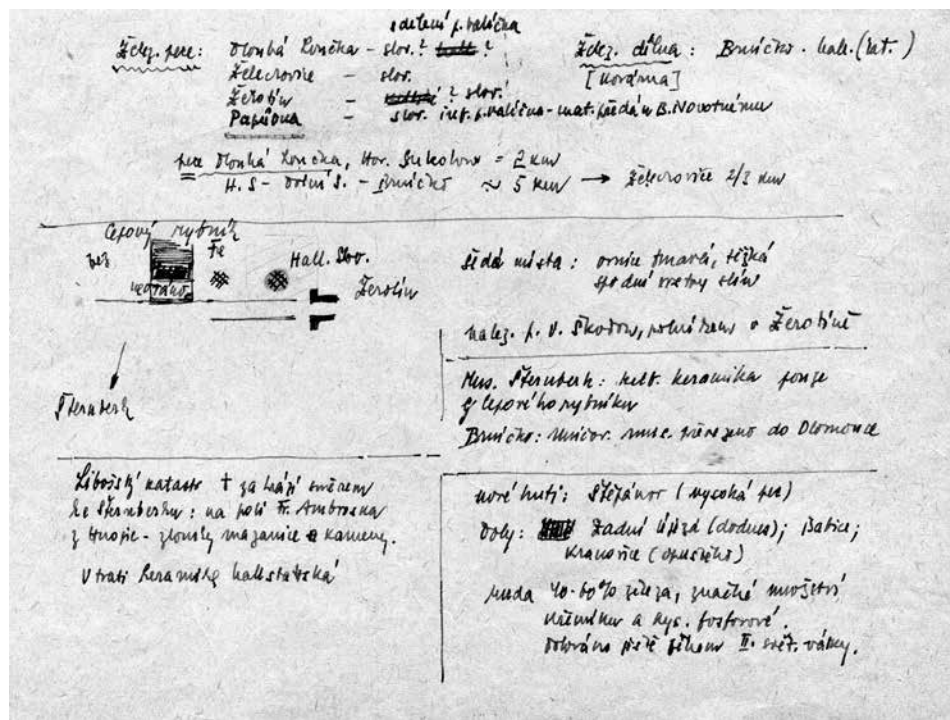 sdělení p. Kalička
Želez. pece: Dlouhá Loučka - slov.? ?
Želechovice - slov.
Žerotín - ? slov.!
Papůvka - slov. inf. p. Kalička - mat. předán B. Novotnému
Želez. dílna: Brníčko - hall. (lat.)
[kovárna]
pece Dlouhá Loučka, Hor. Sukolom = 2 km
H. S - Dolní S. - Brníčko ≈ 5 km → Želechovice 2/3 km
Cepový rybník
bez Fe Hall. Slov.
Žerotín
Šternberk
šedá místa: ornice tmavá, těžká
spodní vrstvy slín
nalez. p. V. Škodov, v Žerotíně
Mus. Šternberk: kelt. keramika pouze
z Cepového rybníku
Brníčko: Uničov. mus. převezeno do Olomouce
Libošský katastr + za hrází směrem
ke Šternberku: na poli Fr. Ambrose
z Hnojic - zlomky mazanice kameny.
V trati keramika hallstatská
nové huti: Štěpánov (vysoká pec)
Doly: Zadní Újezd (dodnes); Babice;
Krakořice (opuštěno)
Ruda 40-60% železa, značné množství
křemíku a kys. fosforové.
Dolováno ještě během II. svět. války.